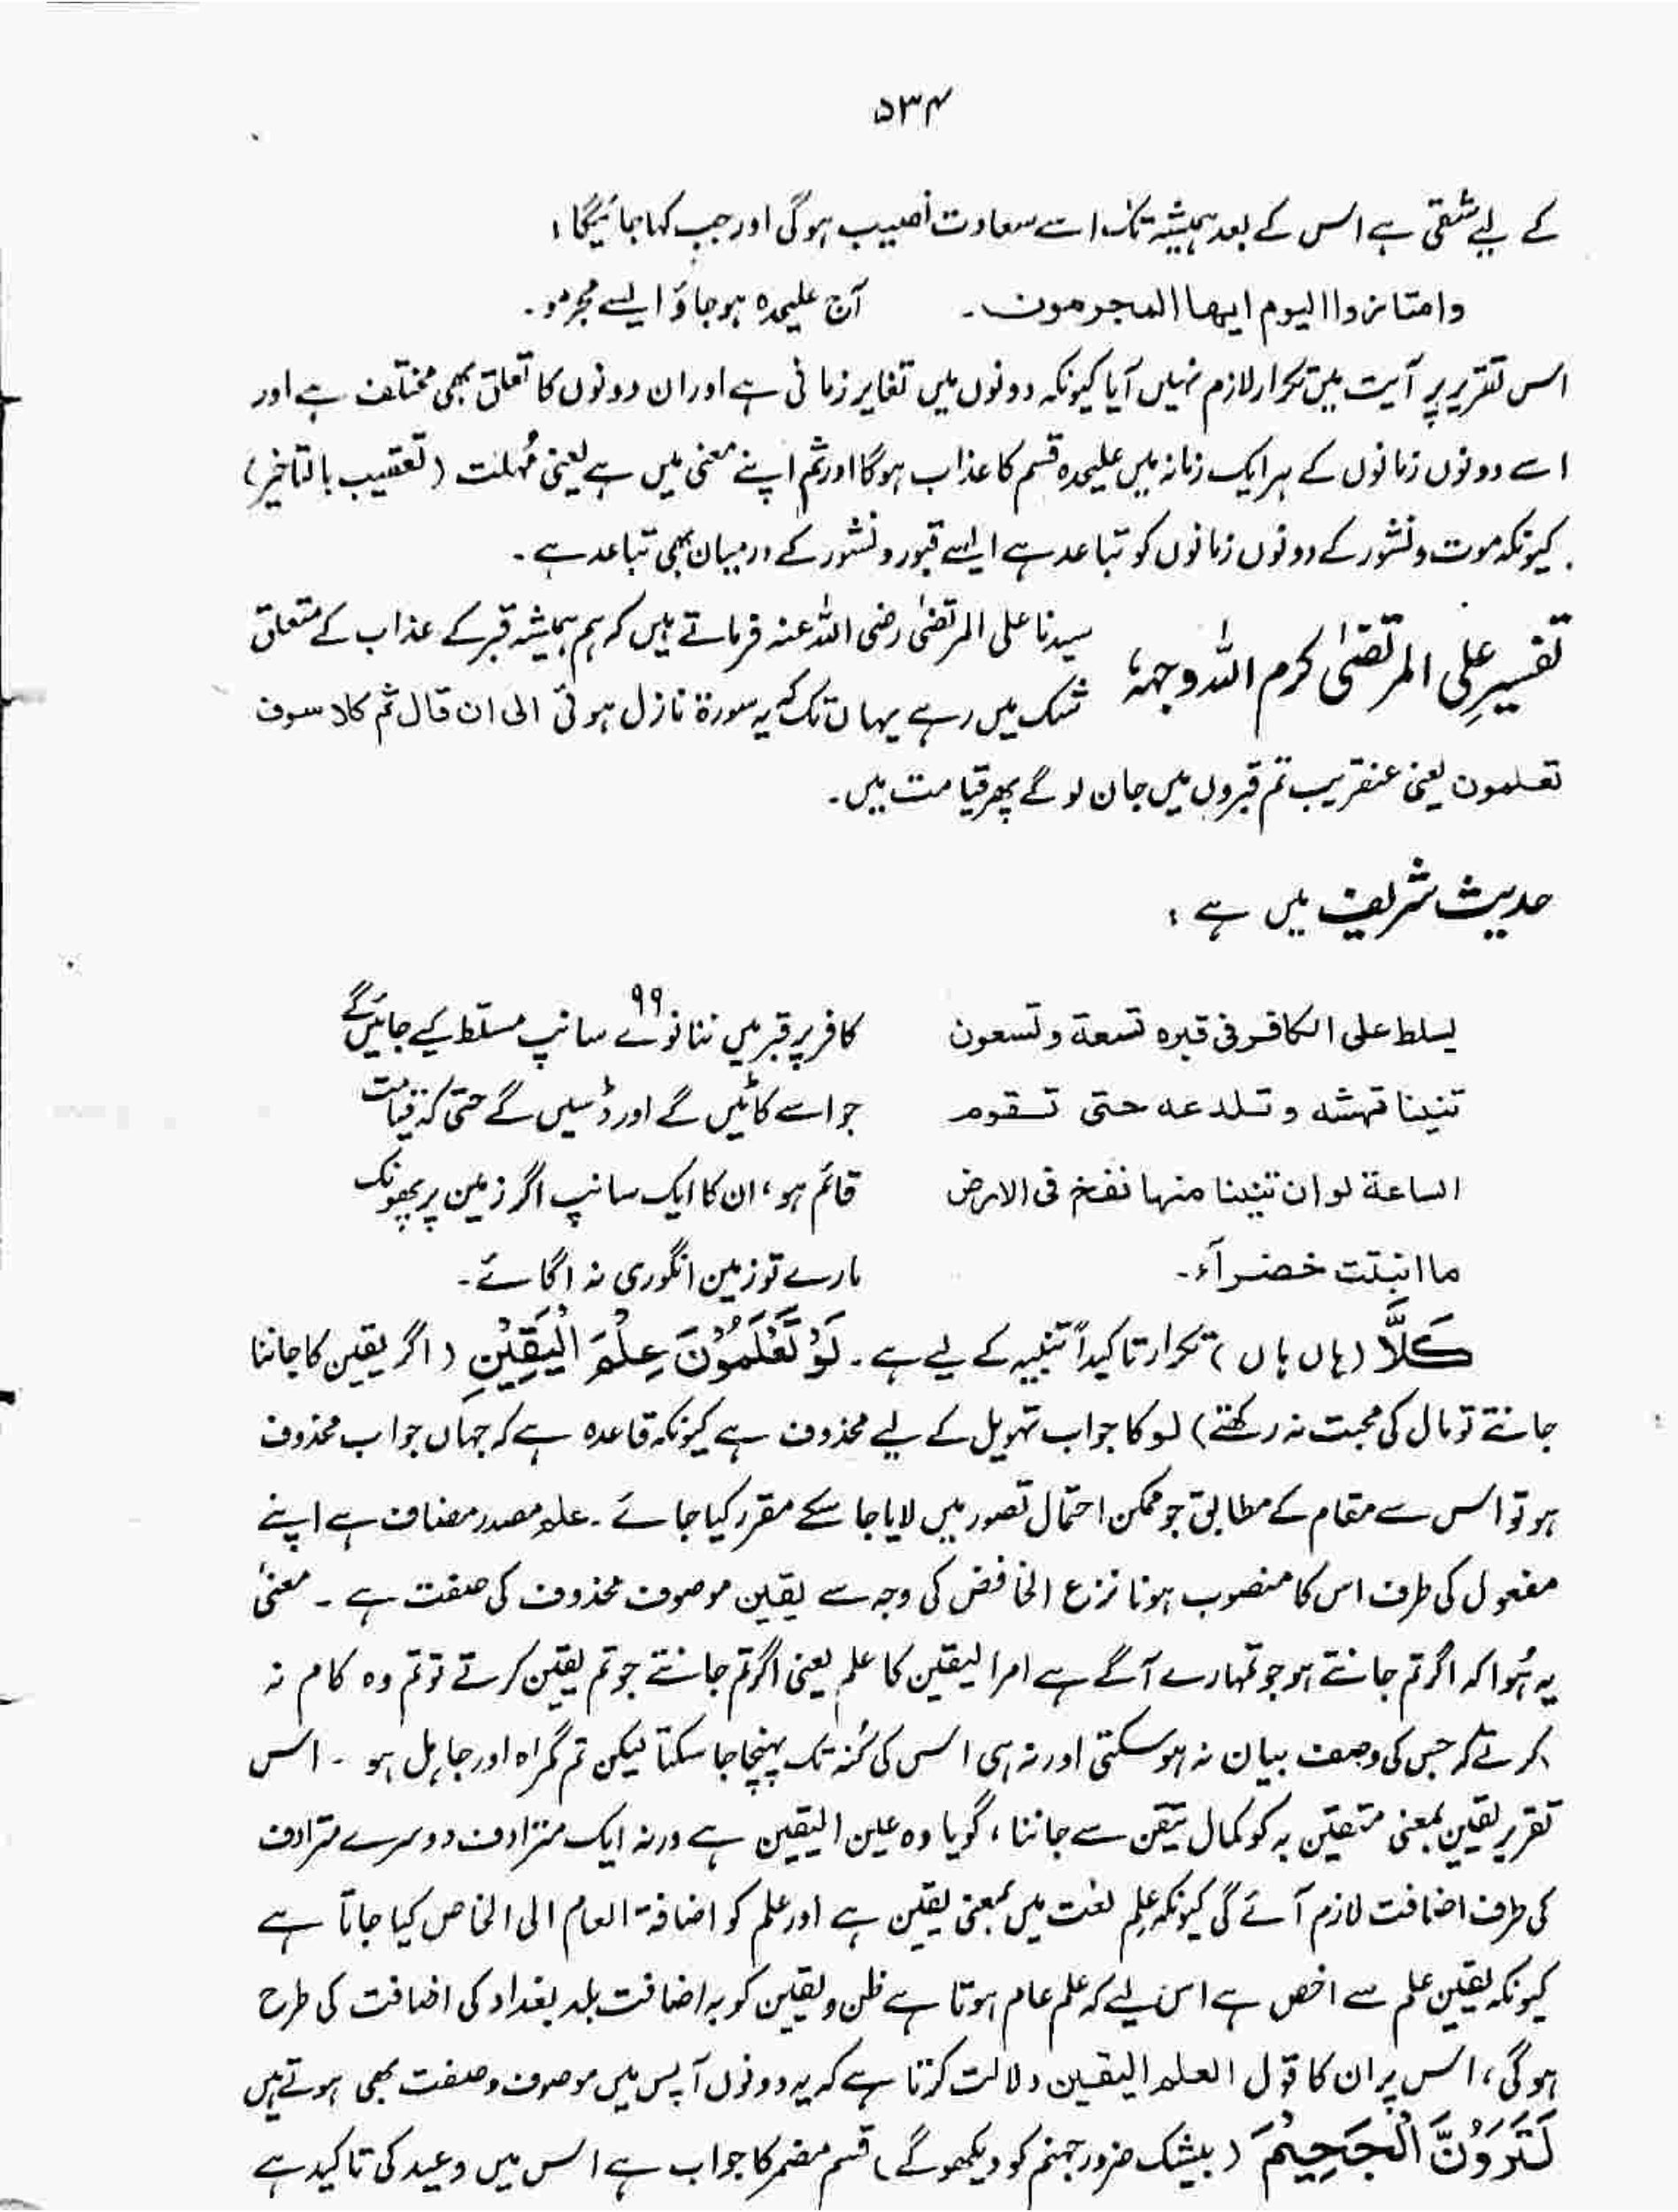 ۵۳۴
کے لیے شقی ہے اس کے بعد ہمیشہ تک اسے سعادت نصیب ہوگی اور جب کہا جائیگا :
وامتازوا الیوم ایھا المجرمون۔ آج علیحدہ ہو جاؤ ایسے مجرمو۔
اس تقریر پر آیت میں تکرار لازم نہیں آیا کیونکہ دونوں میں تغایر زمانی ہے اور ان دونوں کا تعلق بھی مختلف ہے اور
اسے دونوں زمانوں کے ہر ایک زمانہ میں علیحدہ قسم کا عذاب ہوگا اور ثم اپنے معنی میں ہے یعنی مُہلت (تعقیب بالتاخیر)
کیونکہ موت و نشور کے دونوں زمانوں کو تباعد ہے ایسے قبور و نشور کے درمیان بھی تباعد ہے۔
تفسیرِ علی المرتضیٰ کرم اللہ وجہہٗ سیدنا علی المرتضیٰ رضی اللہ عنہ فرماتے ہیں کہ ہم ہمیشہ قبر کے عذاب کے متعلق
شک میں رہے یہاں تک کہ یہ سورۃ نازل ہوئی الی ان قال ثم کلا سوف
تعلمون یعنی عنقریب تم قبروں میں جان لو گے پھر قیامت میں۔
حدیث شریف میں ہے :
یسلط علی الکافر فی قبرہ تسعۃ وتسعون کافر پر قبر میں ننانوے ۹۹ سانپ مسلط کیے جائیں گے
تنینا تھشہ وتلدعہ حتی تقوم جو اسے کاٹیں گے اور ڈسیں گے حتیٰ کہ قیامت
الساعۃ لو ان تنینا منھا نفخ فی الارض قائم ہو، ان کا ایک سانپ اگر زمین پر پھونک
ما انبتت خضرآء۔ مارے تو زمین انگوری نہ اگائے۔
كَلَّا (ہاں ہاں) تکرار تاکیداً تنبیہ کے لیے ہے۔ لَوْ تَعْلَمُوْنَ عِلْمَ الْيَقِيْنِ (اگر یقین کا جاننا
جانتے تو مال کی محبت نہ رکھتے) لو کا جواب تہویل کے لیے محذوف ہے کیونکہ قاعدہ ہے کہ جہاں جواب محذوف
ہو تو اس سے مقام کے مطابق جو ممکن احتمال تصور میں لایا جا سکے مقرر کیا جائے۔ علم مصدر مضاف ہے اپنے
مفعول کی طرف اس کا منصوب ہونا نزع الخافض کی وجہ سے یقین موصوف محذوف کی صفت ہے ۔ معنیٰ
یہ ہُوا کہ اگر تم جانتے ہو جو تمہارے آگے ہے امرا لیقین کا علم یعنی اگر تم جانتے جو تم یقین کرتے تو تم وہ کام نہ
کرتے کہ جس کی وصف بیان نہ ہو سکتی اور نہ ہی اس کی کُنہ تک پہنچا جا سکتا لیکن تم گمراہ اور جاہل ہو ۔ اس
تقریر یقین بمعنی متیقن بہ کو کمال تیقن سے جاننا، گویا وہ عین الیقین ہے ورنہ ایک مترادف دوسرے مترادف
کی طرف اضافت لازم آئے گی کیونکہ علم لغت میں بمعنی یقین ہے اور علم کو اضافۃ العام الی الخاص کیا جاتا ہے
کیونکہ یقین علم سے اخص ہے اس لیے کہ علم عام ہوتا ہے ظن و یقین کو یہ اضافت بلد بغداد کی اضافت کی طرح
ہوگی، اس پر ان کا قول العلم الیقین دلالت کرتا ہے کہ یہ دونوں آپس میں موصوف و صفت بھی ہوتے ہیں
لَتَرَوُنَّ الْجَحِيْمَ (بیشک ضرور جہنم کو دیکھو گے) قسم مضمر کا جواب ہے اس میں وعید کی تاکید ہے